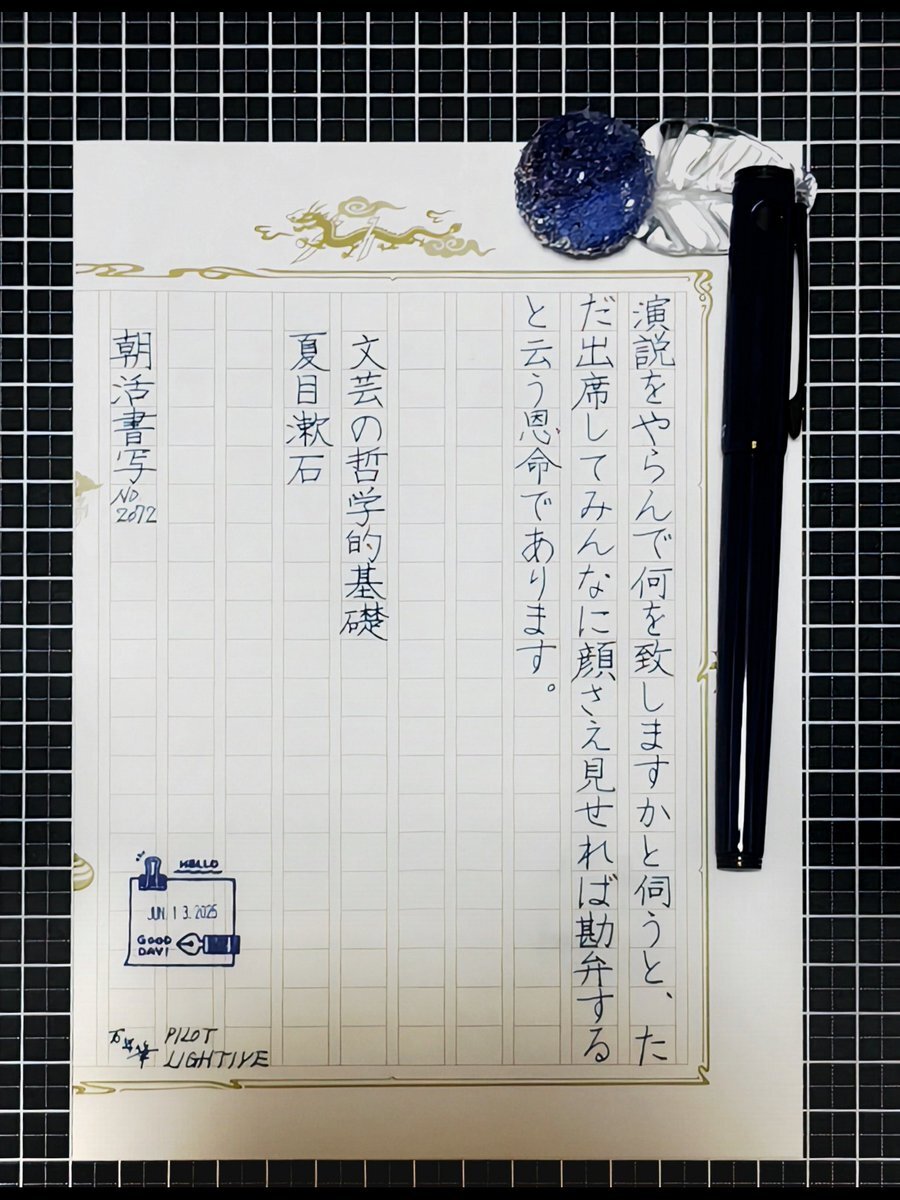 演説をやらんで何を致しますかと伺うと、た
だ出席してみんなに顔さえ見せれば勘弁する
と云う恩命であります。
文芸の哲学的基礎
夏目漱石
朝活書写
NO
2072
HELLO
JUN. 13. 2025
GOOD
DAY!
万年筆
PILOT
LIGHTIVE